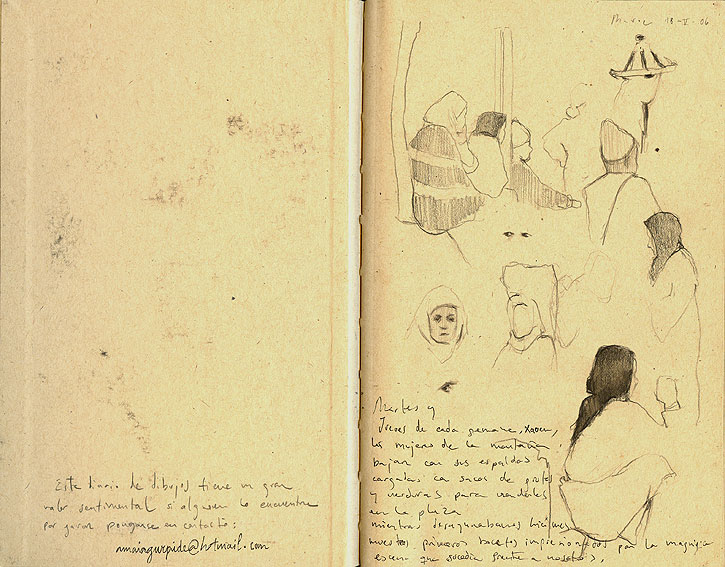 Este diario de dibujos tiene un gran
valor sentimental si alguien lo encuentra
por favor pongance en contacto:
amaiagurpide@hotmail.com
18-V-06
Martes y
Jueves de cada semana, Xaouen,
las mujeres de la montaña
bajan con sus espaldas
cargadas con sacos de
y verduras para venderlas
en la plaza
mientras desayunabamos hicimos
nuestros primeros bocetos impresionados por la magnifica
escena que sucedia frente a nosotros.